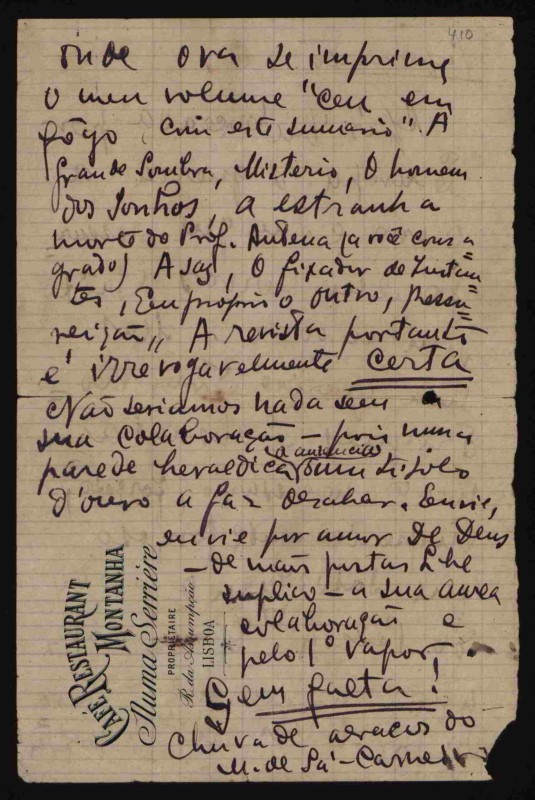 410
onde ora se imprime
o meu volume "Ceu em
fôgo com este sumario". A
Grande Sombra, Misterio, O homem
dos Sonhos, A estranha
morte do Prof. Antena (a você consa=
grado) Asas, O fixador de Instan=
tes, Eu proprio o outro, Ressu=
reição,, A revista portanto
é irrevogavelmente certa
Não seriamos nada sem a
sua colaboração — pois numa
parede heraldica (a ausencia) dum tijolo
d'ouro a faz desabar. Envie,
envie por amor de Deus
— de mãos postas lhe
suplico — a sua aurea
colaboração e
pelo 1º vapor,
em gaeta!
Chuva de abraços do
M. de Sá-Carneiro
CAFÉ RESTAURANT
MONTANHA
Numa Serrière
PROPRIÉTAIRE
R. da Assumpção
LISBOA